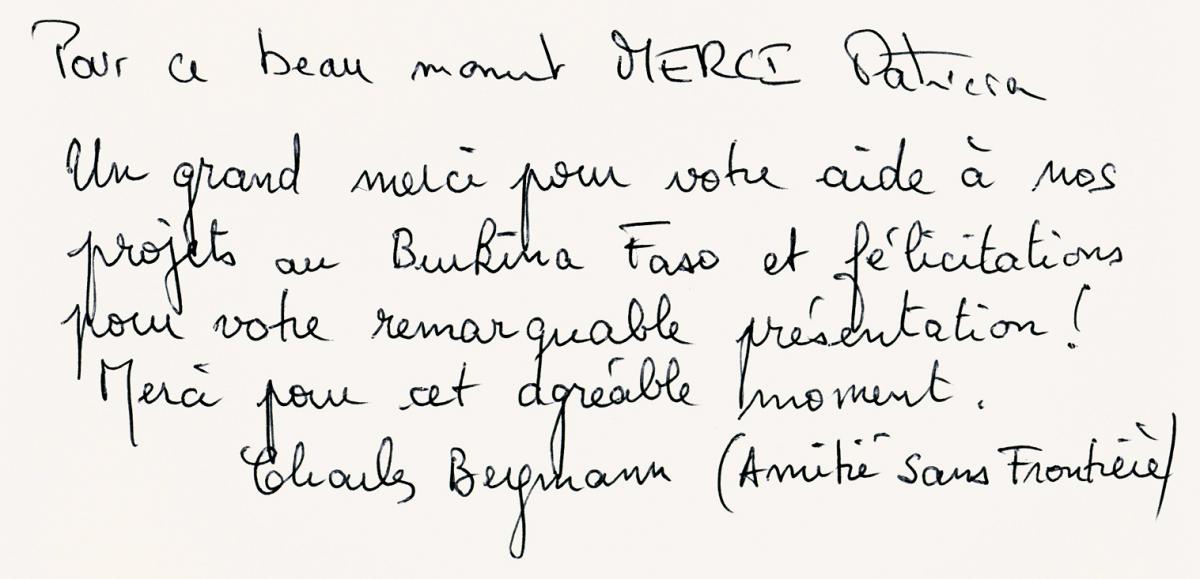 Pour ce beau moment MERCI Patricia
Un grand merci pour votre aide à nos
projets au Burkina Faso et félicitations
pour votre remarquable présentation !
Merci pour cet agréable moment.
Charles Bergmann (Amitié Sans Frontière)